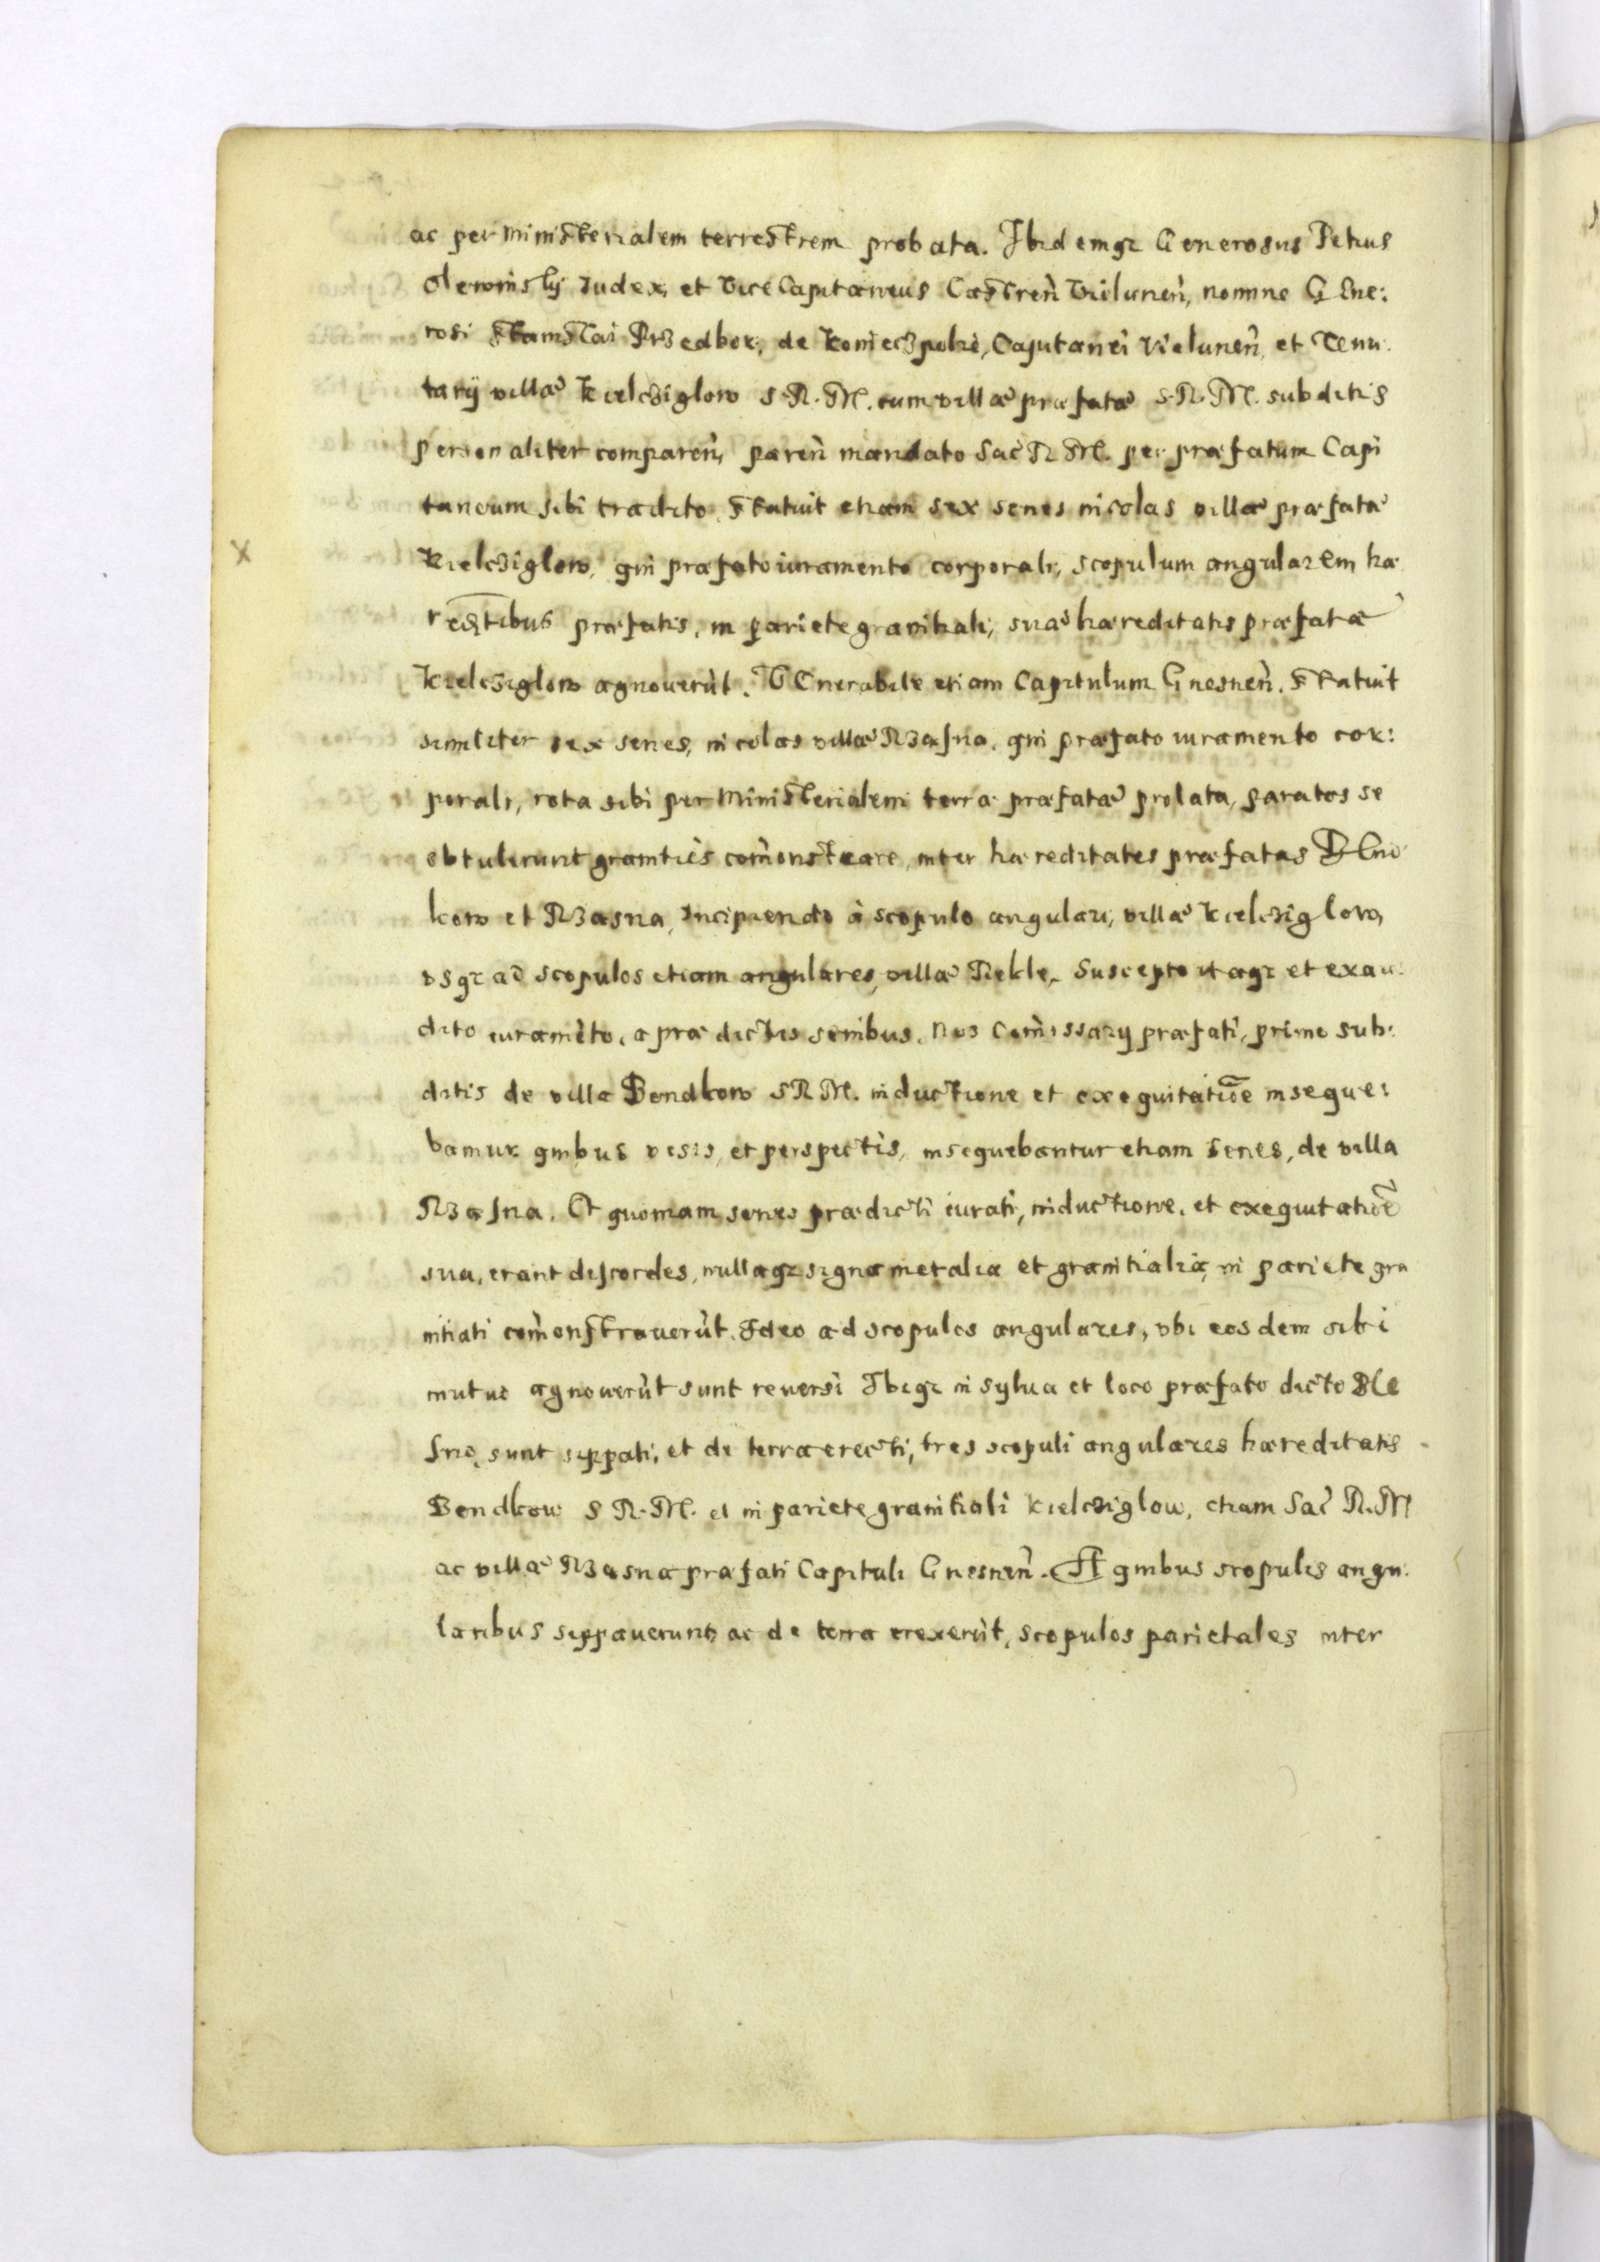 ac per Ministerialem terrestrem probata. Ibidemqz Generosus Petrus
Olewinsky Iudex, et Vice Capitaneus Castren̄ Vielunen̄, nomine GEne:
rosi Stanislai Przedbor, de Koniecʒpolie, Capitanei Vielunen̄, et Tenu
tarÿ villæ Kielcʒiglow S. R. M. cum villæ præfatæ S. R. M. subditis
personaliter comparen̄, paren̄ mandato Sac̄ R M. per præfatum Capi
taneum sibi tradito. Statuit etiam sex senes incolas villæ præfatæ
X Kielcʒiglow, qui præfato iuramento corporali, scopulum angularem hæ
redītibus præfatis, in pariete granitiali, suæ hæreditatis præfatæ
Kielcʒiglow agnoverūt. VEnerabile etiam Capitulum Gnesnen̄. Statuit
similiter sex senes, incolas villæ Rʒąsna, qui præfato iuramento cor:
porali, rota sibi per Ministerialem terræ præfatæ prolata, paratos se
obtulerunt granities com̄onstrare, inter hæreditates præfatas BEnd
kow et Rʒąsna, Incipiendo à scopulo angulari, villæ Kielcʒiglow,
vsqz ad scopulos etiam angulares, villæ Piekle. Suscepto itaqz et exau:
dito iuramēto, a prædictis senibus. Nos Com̄issarÿ præfati, primo sub:
ditis de villa Bendkow S R M. inductione et exequitatiōe inseque:
bamur quibus visis, et perspectis, insequebantur etiam senes, de villa
Rʒąsna. Et quoniam senes prædicti iurati, inductione, et exequitatiōe
sua, erant discordes, nullaqz signa metalia et granitialia, in pariete gra
nitiali com̄onstraverūt. Ideo ad scopulos angulares, vbi eosdem sibi
mutuo agnoverūt sunt reversi Ibiqz in sylua et loco præfato dicto Ble
sno, sunt sippati, et de terra erecti, tres scopuli angulares hæreditatis
Bendkow S R. M. et in pariete granitiali Kielcʒiglow, etiam Sac̄ R. M
ac villæ Rʒąsna præfati Capituli Gnesnen̄. A quibus scopulis angu:
laribus sippaverunt, ac de terra erexerūt, scopulos parietales inter